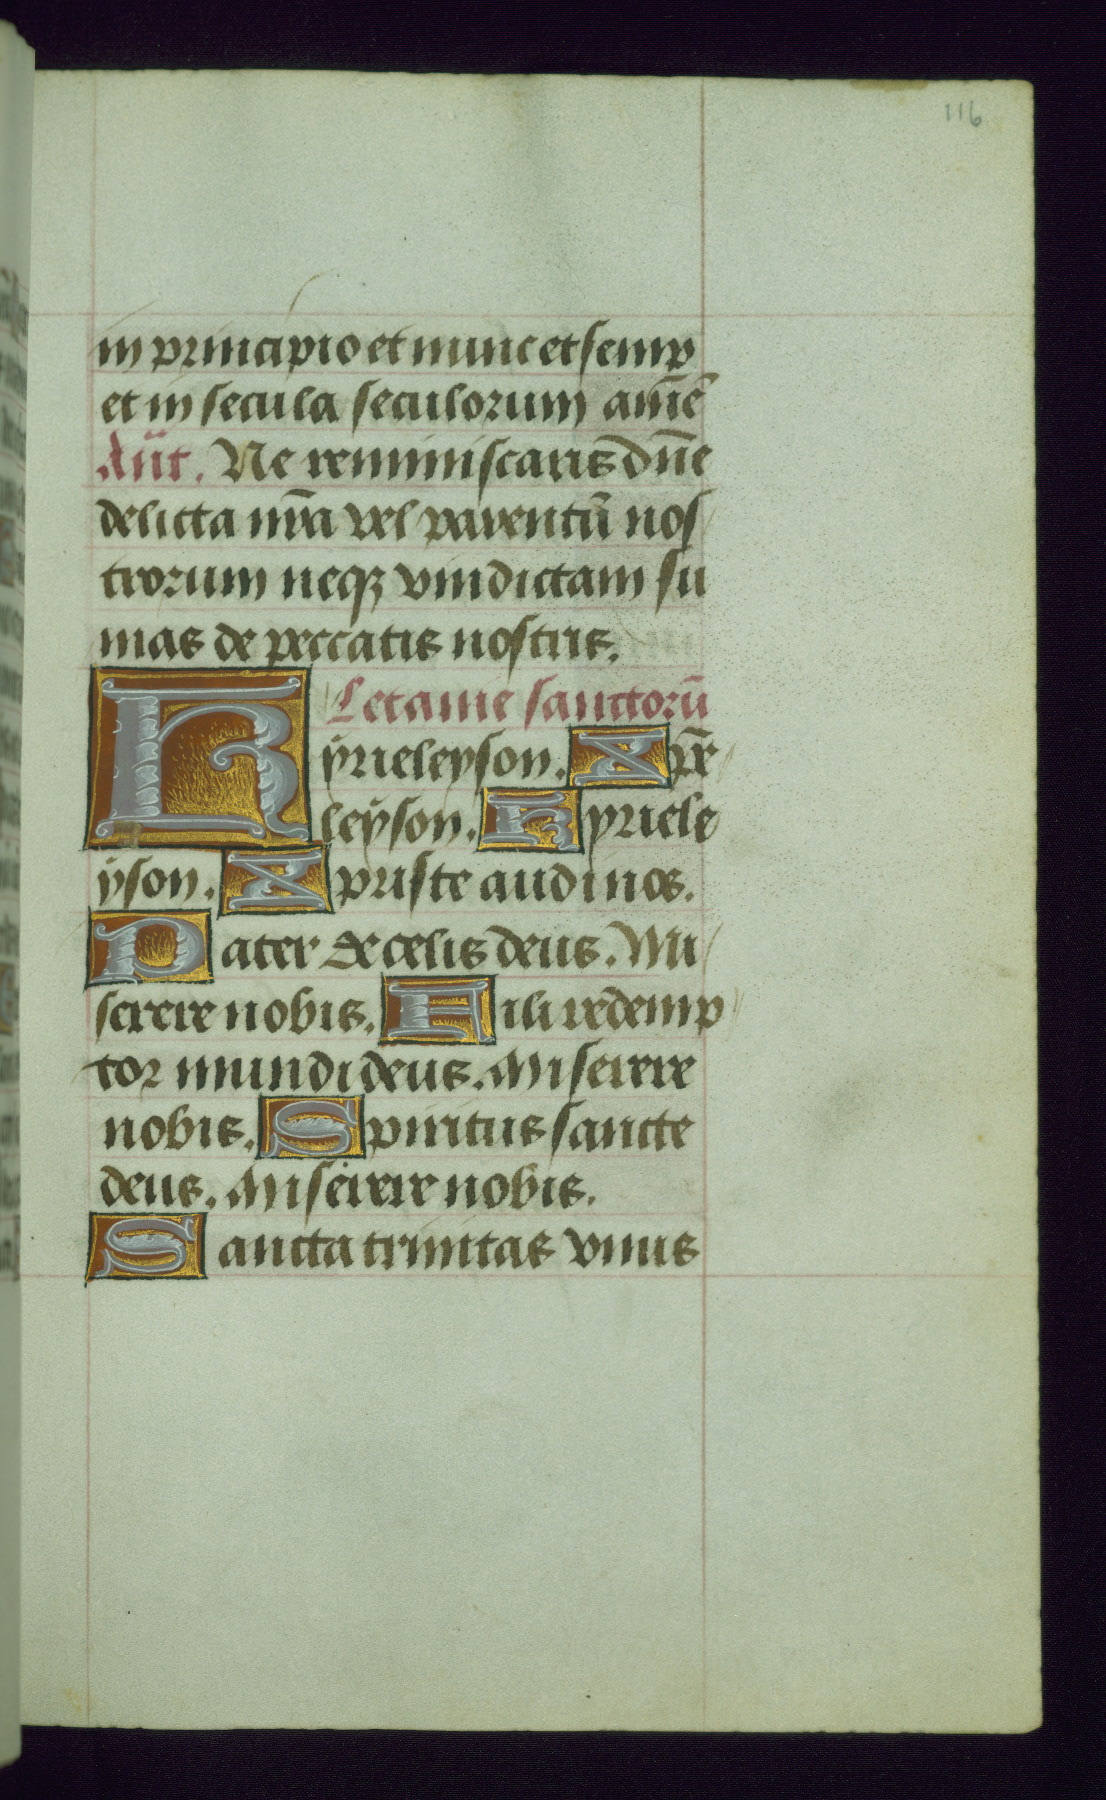 116
in principio et nunc et semp
et in secula seculorum amē
Añt. Ne reminiscaris dñe
delicta nr̄a vel parentū nos
trorum neqꝫ vindictam su
mas de peccatis nostris.
Letanie sanctorū
Kyrieleyson. Xpē
leyson. Kyriele
yson. Xpriste audi nos.
Pater de celis deus. Mi
serere nobis. Fili redemp
tor mundi deus. Miserere
nobis. Spiritus sancte
deus. Miserere nobis.
Sancta trinitas vnus